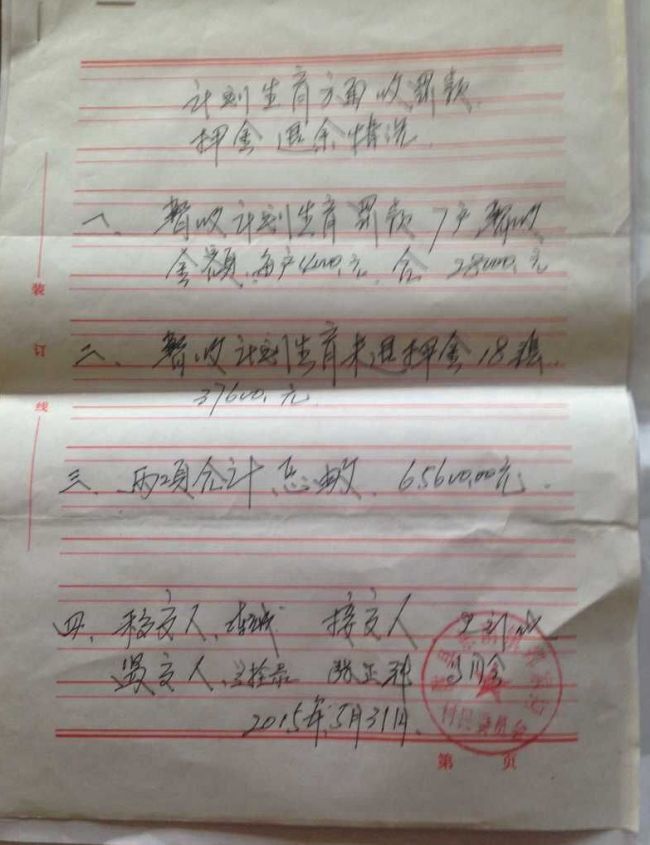 计划生育方面收罚款
押金退余情况
一、暂收计划生育罚款7户暂收
金额,每户4000,元,合28000,元
装
二、暂收计划生育未退押金18
订
37600,元
线
三、两项合计总 65600.00元.
四、移交人, 接交人
交人, 张正
2015年5月31日
村民委员会
第 页